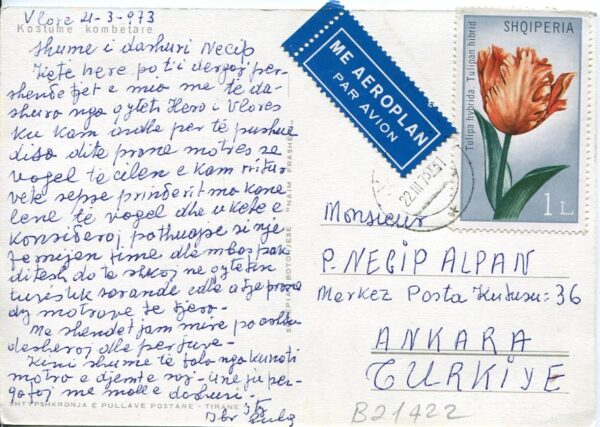 Vlorë 21-3-973
Kostume kombëtare
Shume i dashuri Necip
Kete here po t'i dergoj per-
shendetjet e mia me të da-
shura nga qyteti Hero i Vlores
ku kam ardhe per të pushue
disa dite prane motres se
vogel të cilen e kam rritur
vete sepse prinderit ma kane
lene të vogel dhe u kete e
konsideroj pothuajse si nje
femijen time dhe mbas pak
ditesh do të shkoj ne qytetin
turistik Sarande edhe atje prane
dy motrave të tjera.
Me shendet jam mire po ashtu
dësheroj dhe per juve.
Keni shume të fala nga kunati
motra e djemte saj - Une ju për-
qafoj me mall e dashuri.
SHTYPSHKRONJA E PULLAVE POSTARE - TIRANE
SHTEPIA BOTONJESE "NAIM FRASHERI"
ME AEROPLAN
PAR AVION
SHQIPERIA
Tulipa hybrida. Tulipan hibrid
1 L
22.III.73
Monsieur
P. NECIP ALPAN
Merkez Posta Kutusu: 36
ANKARA
TURKİYE
B21422